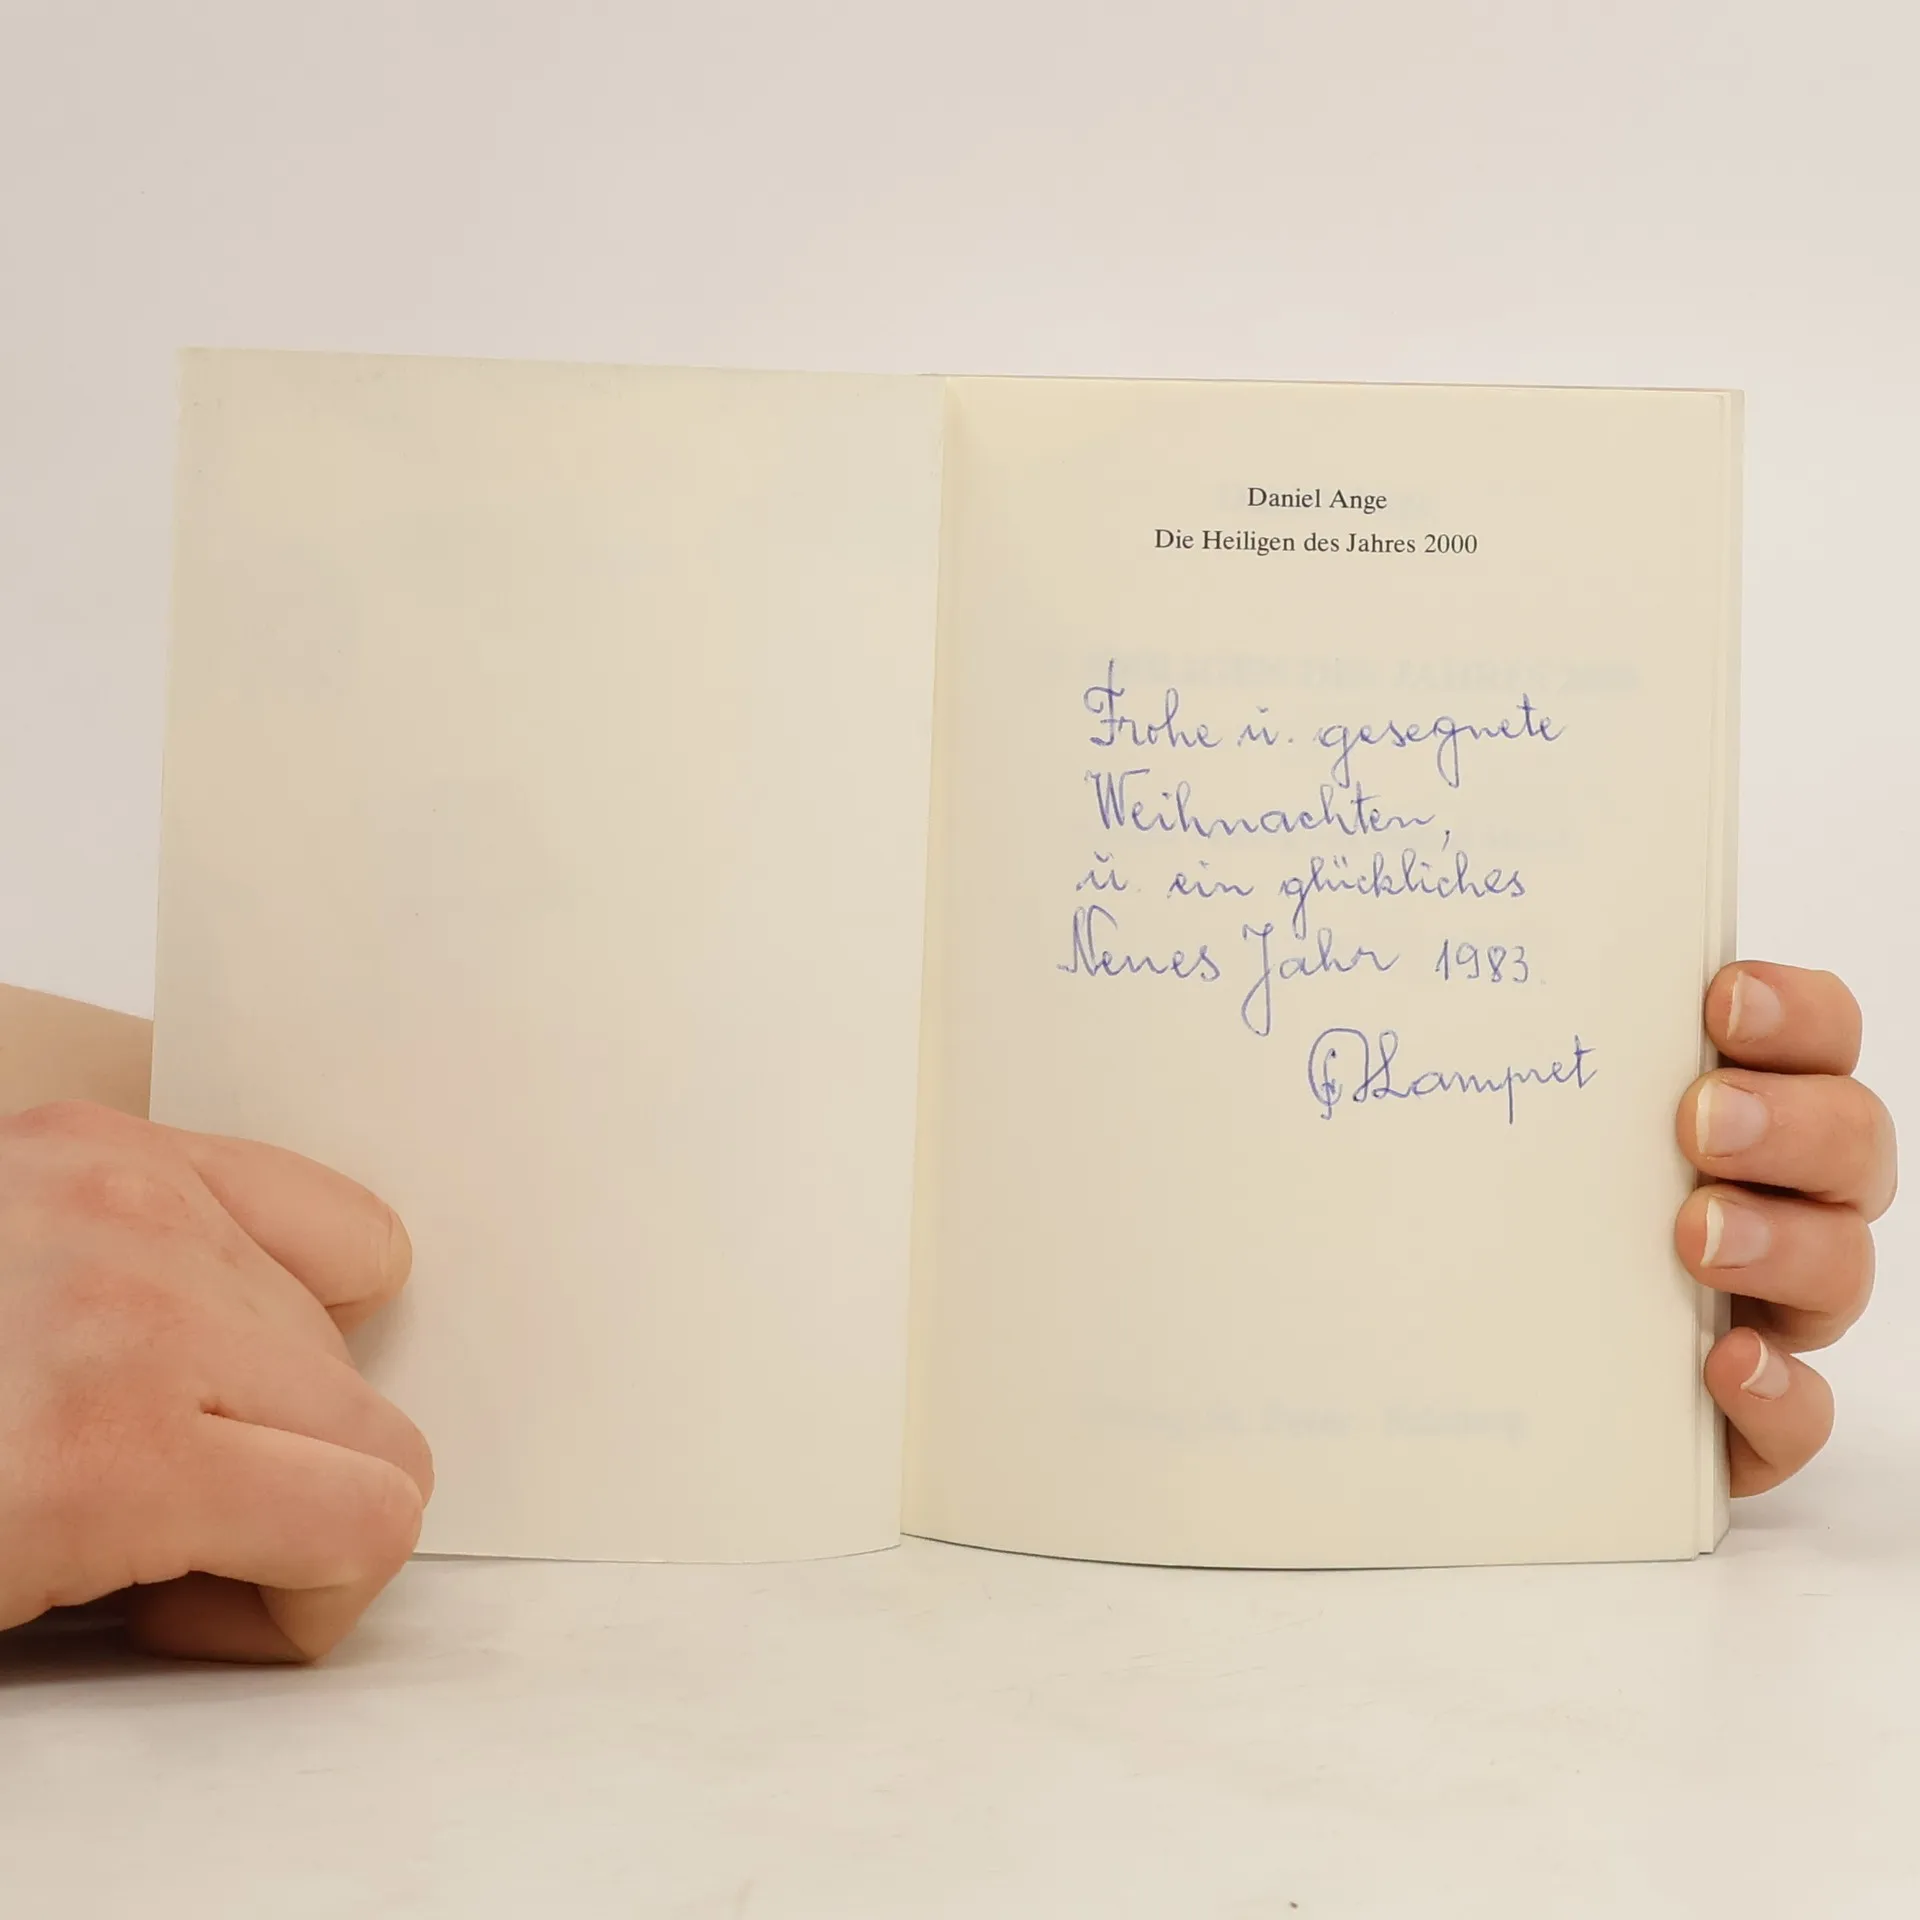 Daniel Ange
Die Heiligen des Jahres 2000
Frohe ŭ. gesegnete
Weihnachten,
ŭ. ein glückliches
Neues Jahr 1983.
Lampret